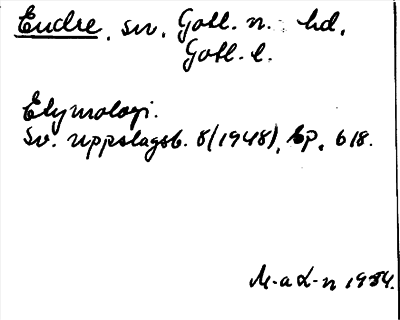 Endre, sn, Gotl. n. hd,
Gotl. l.
Etymologi.
Sv. uppslagsb. 8 (1948), sp. 618.
M-a L-n 1954.